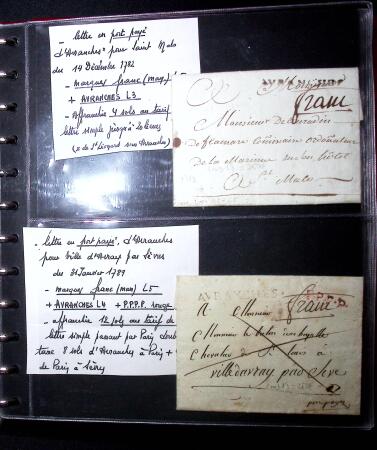 - lettre en port payé
d'Avranches pour Saint Malo
du 14 Décembre 1782
- marques franc (man) L5
+ AVRANCHES L3
- affranchie 4 sols au tarif
lettre simple jusqu'à
AVRANCHES
Monsieur
franc
Monsieur de
de commissaire ordonnateur
de la Marine en son hôtel
A St Malo
- lettre en port payé, d'Avranches
pour Ville d'Avray par Sèvres
du 31 Janvier 1789
- marques franc (man) L5
+ AVRANCHES L4 + P.P.P.P rouge
- affranchie 12 sols au tarif de
lettre simple passant par Paris dont
taxe 8 sols d'Avranches à Paris +
de Paris à Sèvres
AVRANCHES
P.P.P.P
A Monsieur franc
Monsieur le
Chevalier de St Louis à
villedavray pad Seve